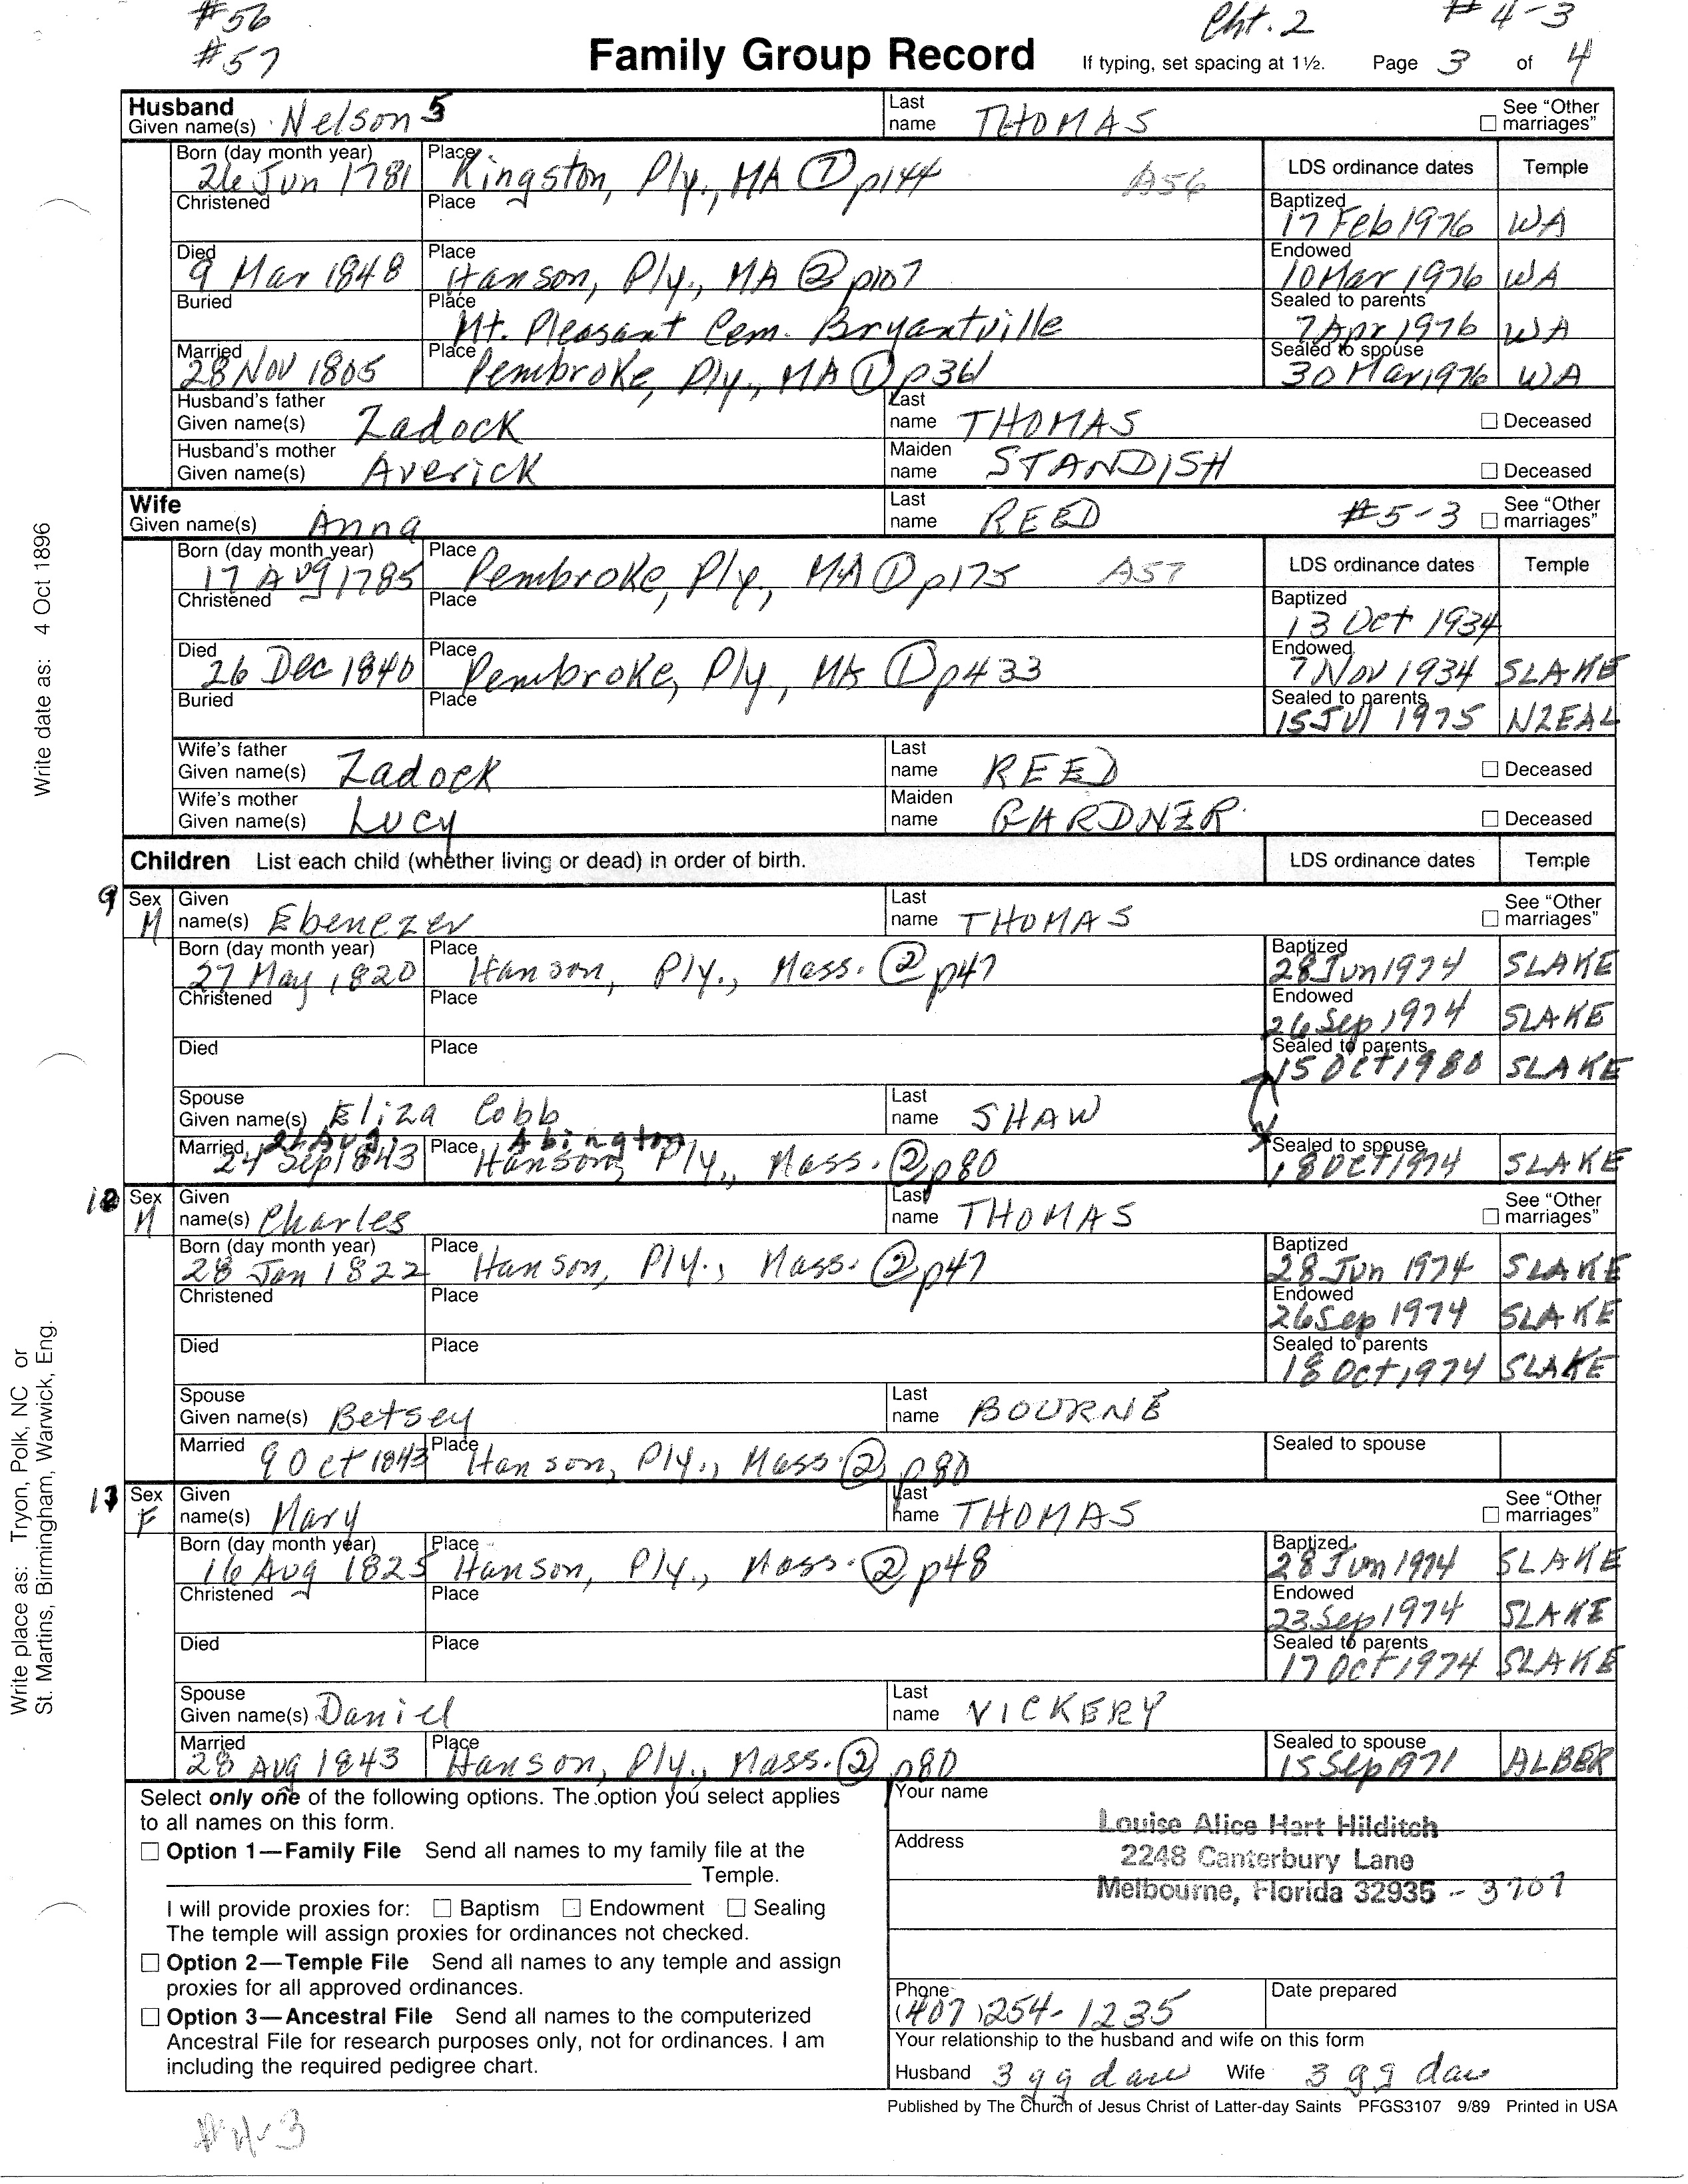 #56 Cht. 2 #4-3
#57 Family Group Record If typing, set spacing at 1½. Page 3 of 4
Husband
Given name(s) Nelson 5 Last name THOMAS See "Other marriages"
Born (day month year) 26 Jun 1781 Place Kingston, Ply., MA ① p144 A56 LDS ordinance dates Temple
Christened Place Baptized 17 Feb 1976 WA
Died 9 Mar 1848 Place Hanson, Ply., MA ② p107 Endowed 10 Mar 1976 WA
Buried Place Mt. Pleasant Cem. Bryantville Sealed to parents 7 Apr 1976 WA
Married 28 Nov 1805 Place Pembroke, Ply., MA ① p361 Sealed to spouse 30 Mar 1976 WA
Husband's father
Given name(s) Zadock Last name THOMAS Deceased
Husband's mother
Given name(s) Averick Maiden name STANDISH Deceased
Wife
Given name(s) Anna Last name REED #5-3 See "Other marriages"
Born (day month year) 17 Aug 1785 Place Pembroke, Ply., MA ① p175 A57 LDS ordinance dates Temple
Christened Place Baptized 13 Oct 1934
Died 26 Dec 1840 Place Pembroke, Ply., MA ① p433 Endowed 7 Nov 1934 SLAKE
Buried Place Sealed to parents 15 Jul 1975 NZEAL
Wife's father
Given name(s) Zadock Last name REED Deceased
Wife's mother
Given name(s) Lucy Maiden name GARDNER. Deceased
Children List each child (whether living or dead) in order of birth. LDS ordinance dates Temple
9 Sex M Given name(s) Ebenezer Last name THOMAS See "Other marriages"
Born (day month year) 27 May 1820 Place Hanson, Ply., Mass. ② p47 Baptized 28 Jun 1974 SLAKE
Christened Place Endowed 26 Sep 1974 SLAKE
Died Place Sealed to parents 15 Oct 1980 SLAKE
Spouse
Given name(s) Eliza Cobb Last name SHAW
26 Aug. Abington
Married 24 Sep 1843 Place Hanson, Ply., Mass. ② p80 Sealed to spouse 18 Oct 1974 SLAKE
10 Sex M Given name(s) Charles Last name THOMAS See "Other marriages"
Born (day month year) 28 Jan 1822 Place Hanson, Ply., Mass. ② p47 Baptized 28 Jun 1974 SLAKE
Christened Place Endowed 26 Sep 1974 SLAKE
Died Place Sealed to parents 18 Oct 1974 SLAKE
Spouse
Given name(s) Betsey Last name BOURNE
Married 9 Oct 1843 Place Hanson, Ply., Mass. ② p80 Sealed to spouse
Sex F Given name(s) Mary Last name THOMAS See "Other marriages"
Born (day month year) 16 Aug 1825 Place Hanson, Ply., Mass. ② p48 Baptized 28 Jun 1974 SLAKE
Christened Place Endowed 23 Sep 1974 SLAKE
Died Place Sealed to parents 17 Oct 1974 SLAKE
Spouse
Given name(s) Daniel Last name VICKERY
Married 28 Aug 1843 Place Hanson, Ply., Mass. ② p80 Sealed to spouse 15 Sep 1971 ALBER
Select only one of the following options. The option you select applies
to all names on this form.
Option 1—Family File Send all names to my family file at the
Temple.
I will provide proxies for: Baptism Endowment Sealing
The temple will assign proxies for ordinances not checked.
Option 2—Temple File Send all names to any temple and assign
proxies for all approved ordinances.
Option 3—Ancestral File Send all names to the computerized
Ancestral File for research purposes only, not for ordinances. I am
including the required pedigree chart.
Your name
Louise Alice Hart Hilditch
Address
2248 Canterbury Lane
Melbourne, Florida 32935 - 3707
Phone (407) 254-1235 Date prepared
Your relationship to the husband and wife on this form
Husband 3 gg dau Wife 3 gg dau
Published by The Church of Jesus Christ of Latter-day Saints PFGS3107 9/89 Printed in USA
#4-3
Write date as: 4 Oct 1896
Write place as: Tryon, Polk, NC or
St. Martins, Birmingham, Warwick, Eng.